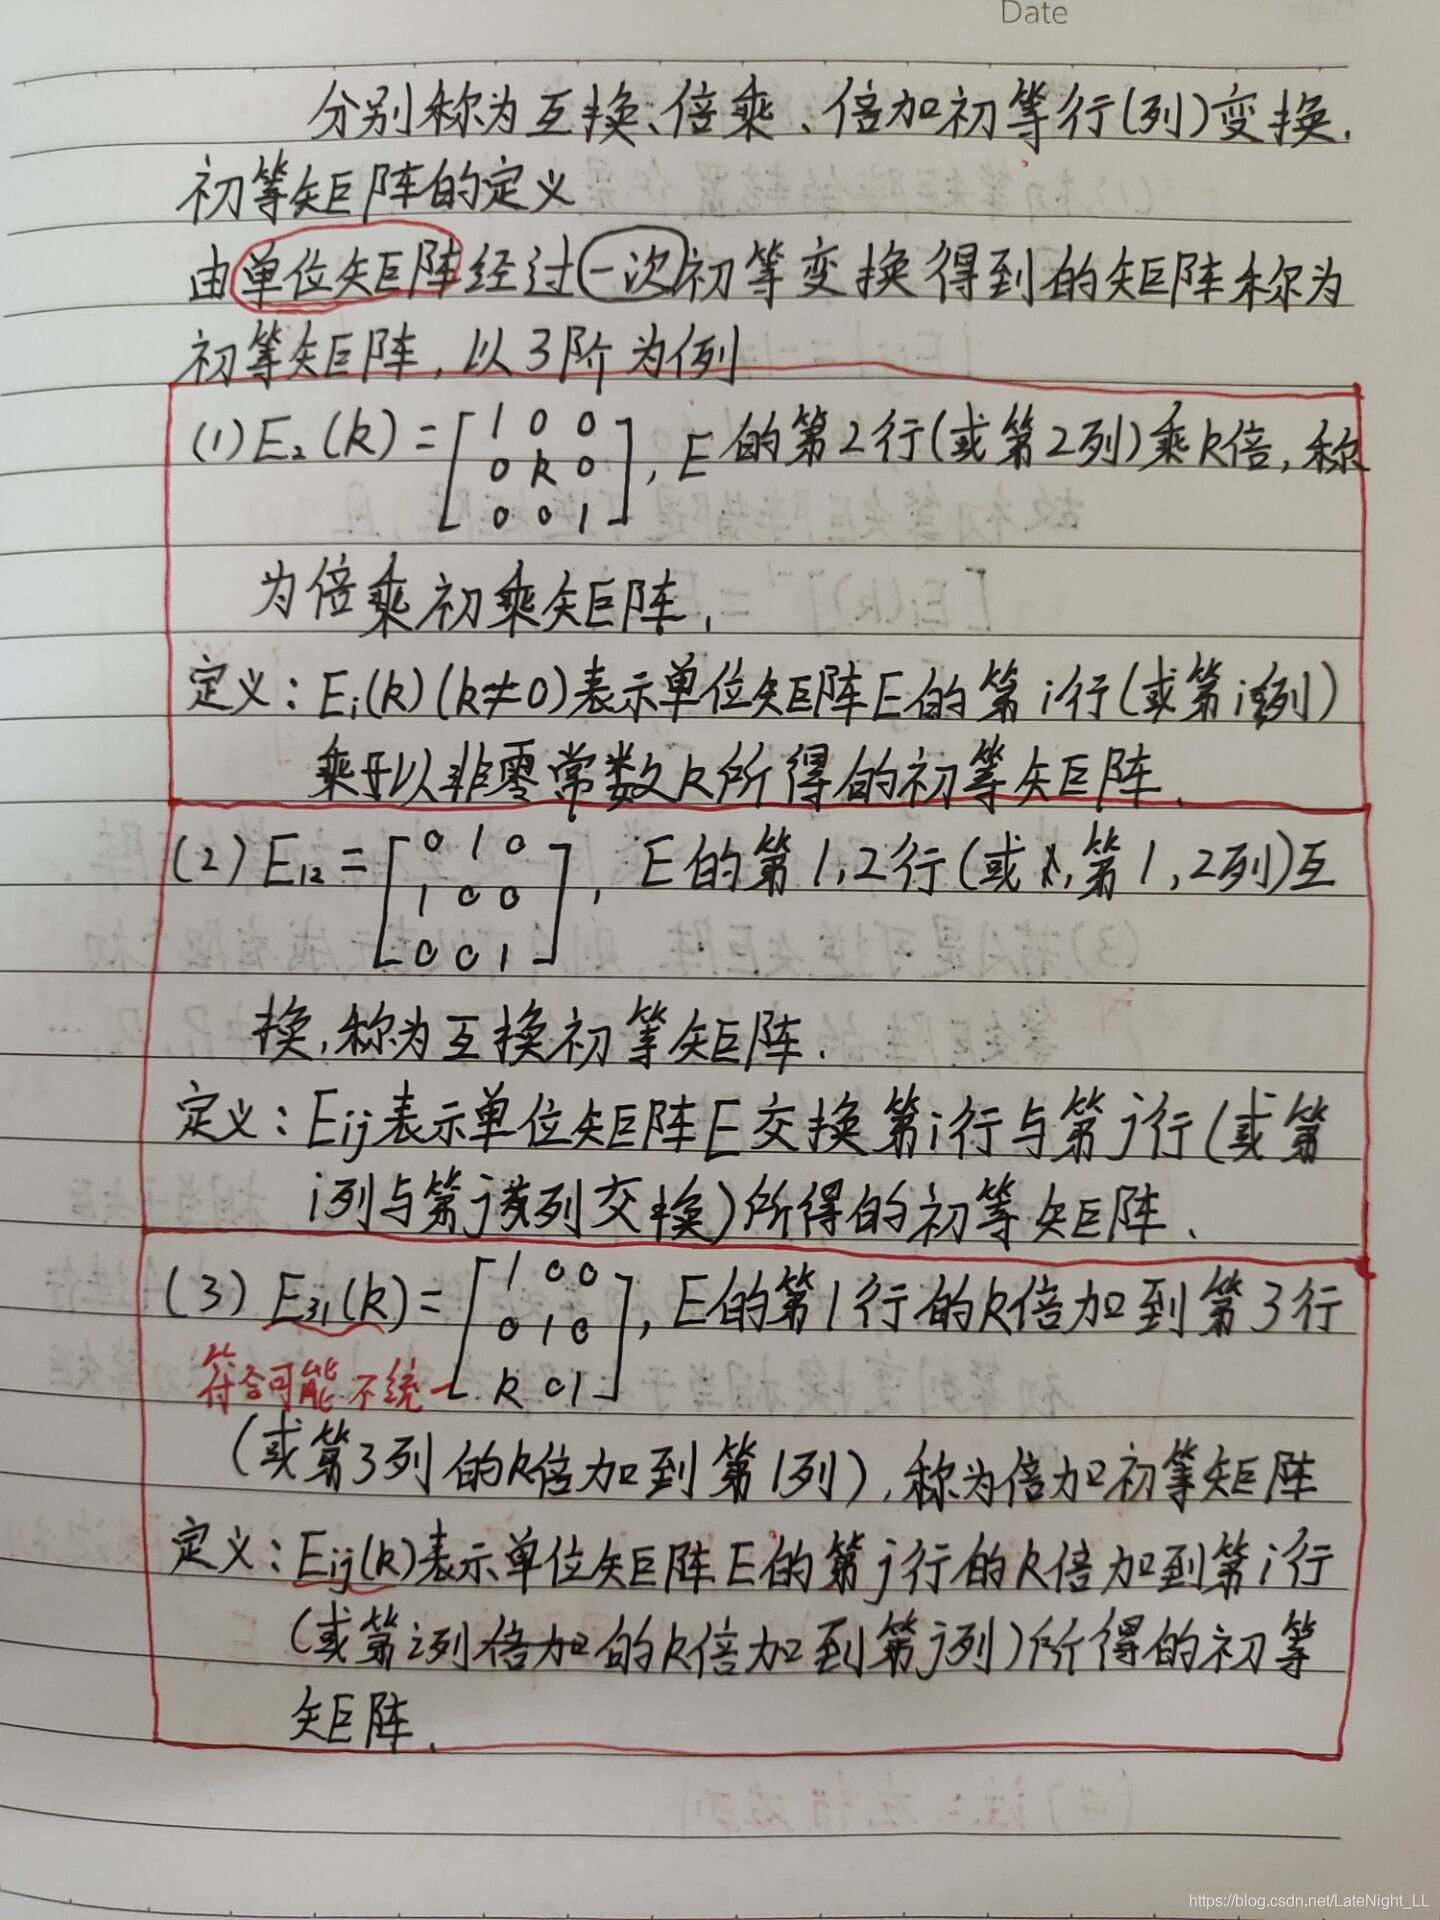 Date
分别称为互换、倍乘、倍加初等行(列)变换.
初等矩阵的定义
由单位矩阵经过一次初等变换得到的矩阵称为
初等矩阵，以3阶为例
(1) E₂(k) = [1 0 0
0 k 0
0 0 1], E的第2行(或第2列)乘k倍, 称
为倍乘初乘矩阵.
定义: Eᵢ(k)(k≠0)表示单位矩阵E的第i行(或第i列)
乘以非零常数k所得的初等矩阵.
(2) E₁₂ = [0 1 0
1 0 0
0 0 1], E的第1,2行(或第1,2列)互
换,称为互换初等矩阵.
定义: Eij表示单位矩阵E交换第i行与第j行(或第
i列与第j列交换)所得的初等矩阵.
(3) E₃₁(k) = [1 0 0
0 1 0
k 0 1], E的第1行的k倍加到第3行
符合可能不统一
(或第3列的k倍加到第1列),称为倍加初等矩阵
定义: Eij(k)表示单位矩阵E的第j行的k倍加到第i行
(或第i列倍加的k倍加到第j列)所得的初等
矩阵.
https://blog.csdn.net/LateNight_LL